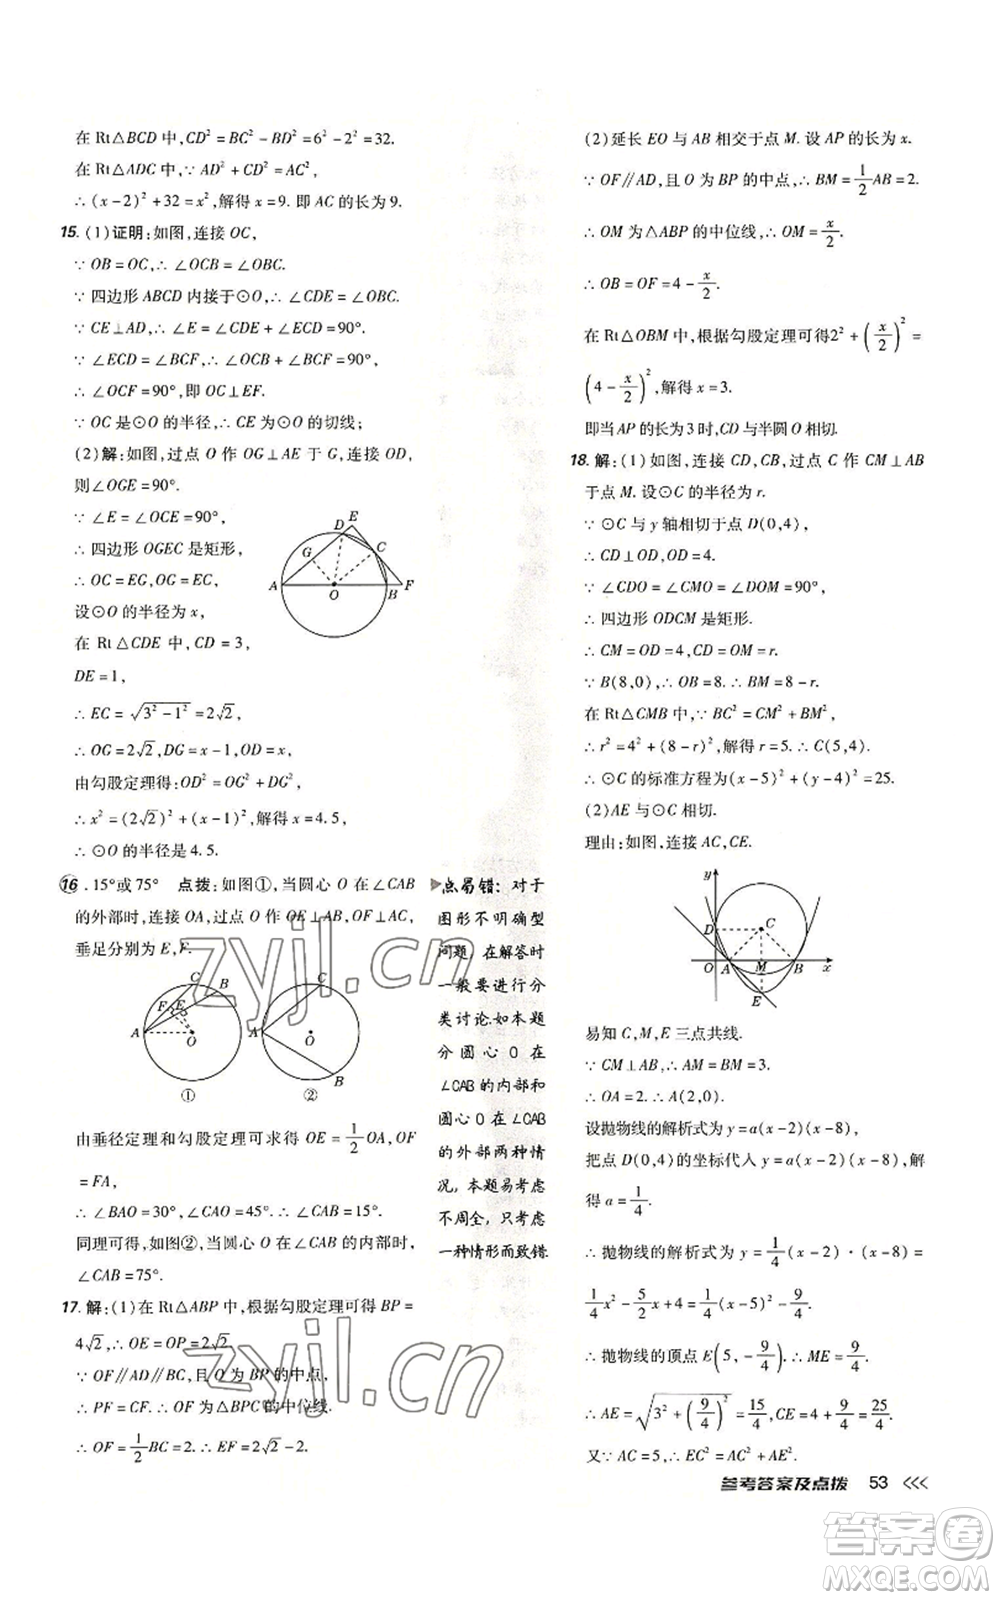 在 Rt△BCD 中,CD²=BC²-BD²=6²-2²=32.
在 Rt△ADC 中,∵AD²+CD²=AC²,
∴(x-2)²+32=x²,解得 x=9. 即 AC 的长为 9.
15.(1)证明:如图,连接 OC,
∵OB=OC,∴∠OCB=∠OBC.
∵四边形 ABCD 内接于⊙O,∴∠CDE=∠OBC.
∵CE⊥AD,∴∠CDE+∠ECD=90°.
∵∠ECD=∠BCF,∴∠OCB+∠BCF=90°,
∴∠OCF=90°,即 OC⊥EF.
∵OC 是⊙O 的半径,∴CE 为⊙O 的切线;
(2)解:如图,过点 O 作 OG⊥AE 于 G,连接 OD,
则∠OGE=90°.
∵∠E=∠OCE=90°,
∴四边形 OGEC 是矩形,
∴OC=EG,OG=EC,
设⊙O 的半径为 x,
在 Rt△CDE 中,CD=3,
DE=1,
∴EC=√(3²-1²)=2√2,
∴OG=2√2,DG=x-1,OD=x,
由勾股定理得:OD²=OG²+DG²,
∴x²=(2√2)²+(x-1)²,解得 x=4.5,
∴⊙O 的半径是 4.5.
D E G C A O B F
16.15°或 75° 点拨:如图①,当圆心 O 在∠CAB
的外部时,连接 OA,过点 O 作 OE⊥AB,OF⊥AC,
垂足分别为 E,F.
C B F E A O ①
C A O B ②
由垂径定理和勾股定理可求得 OE=1/2OA,OF
=FA,
∴∠BAO=30°,∠CAO=45°.∴∠CAB=15°.
同理可得,如图②,当圆心 O 在∠CAB 的内部时,
∠CAB=75°.
17.解:(1)在 Rt△ABP 中,根据勾股定理可得 BP=
4√2,∴OE=OP=2√2.
∵OF∥AD∥BC,且 O 为 BP 的中点,
∴PF 为△BPC 的中位线.
∴OF=1/2BC=2.∴EF=2√2-2.
点易错:对于
图形不明确型
问题,在解答时
一般要进行分
类讨论.如本题
分圆心 O 在
∠CAB 的内部和
圆心 O 在∠CAB
的外部两种情
况,本题易考虑
不周全,只考虑
一种情形而致错.
(2)延长 EO 与 AB 相交于点 M. 设 AP 的长为 x.
∵OF∥AD,且 O 为 BP 的中点,∴BM=1/2AB=2.
∴OM 为△ABP 的中位线,∴OM=x/2.
∴OB=OF=4-x/2.
在 Rt△OBM 中,根据勾股定理可得2²+(x/2)²=
(4-x/2)²,解得 x=3.
即当 AP 的长为 3 时,CD 与半圆 O 相切.
18.解:(1)如图,连接 CD,CB,过点 C 作 CM⊥AB
于点 M. 设⊙C 的半径为 r.
∵⊙C 与 y 轴相切于点 D(0,4),
∴CD⊥OD,OD=4.
∵∠CDO=∠CMO=∠DOM=90°,
∴四边形 ODCM 是矩形.
∴CM=OD=4,CD=OM=r.
∵B(8,0),∴OB=8.∴BM=8-r.
在 Rt△CMB 中,∵BC²=CM²+BM²,
∴r²=4²+(8-r)²,解得 r=5.∴C(5,4).
∴⊙C 的标准方程为(x-5)²+(y-4)²=25.
(2)AE 与⊙C 相切.
理由:如图,连接 AC,CE.
y D C O A M B x E
易知 C,M,E 三点共线.
∵CM⊥AB,∴AM=BM=3.
∴OA=2.∴A(2,0).
设抛物线的解析式为 y=a(x-2)(x-8),
把点 D(0,4)的坐标代人 y=a(x-2)(x-8),解
得 a=1/4.
∴抛物线的解析式为 y=1/4(x-2)·(x-8)=
1/4x²-5/2x+4=1/4(x-5)²-9/4.
∴抛物线的顶点 E(5,-9/4).∴ME=9/4.
∴AE=√(3²+(9/4)²)=15/4,CE=4+9/4=25/4.
又∵AC=5,∴EC²=AC²+AE².
参考答案及点拨 53
zyjl.cn
zyjl.cn
答案圈
MXQE.COM